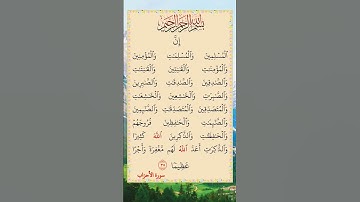 بسم الله الرحمن الرحيم
إِنَّ
ٱلْمُسْلِمِينَ وَٱلْمُسْلِمَٰتِ وَٱلْمُؤْمِنِينَ
وَٱلْمُؤْمِنَٰتِ وَٱلْقَٰنِتِينَ وَٱلْقَٰنِتَٰتِ
وَٱلصَّٰدِقِينَ وَٱلصَّٰدِقَٰتِ وَٱلصَّٰبِرِينَ
وَٱلصَّٰبِرَٰتِ وَٱلْخَٰشِعِينَ وَٱلْخَٰشِعَٰتِ
وَٱلْمُتَصَدِّقِينَ وَٱلْمُتَصَدِّقَٰتِ وَٱلصَّٰٓئِمِينَ
وَٱلصَّٰٓئِمَٰتِ وَٱلْحَٰفِظِينَ فُرُوجَهُمْ
وَٱلْحَٰفِظَٰتِ وَٱلذَّٰكِرِينَ ٱللَّهَ كَثِيرًا
وَٱلذَّٰكِرَٰتِ أَعَدَّ ٱللَّهُ لَهُم مَّغْفِرَةً وَأَجْرًا
عَظِيمًا ٣٥
سورة الأحزاب